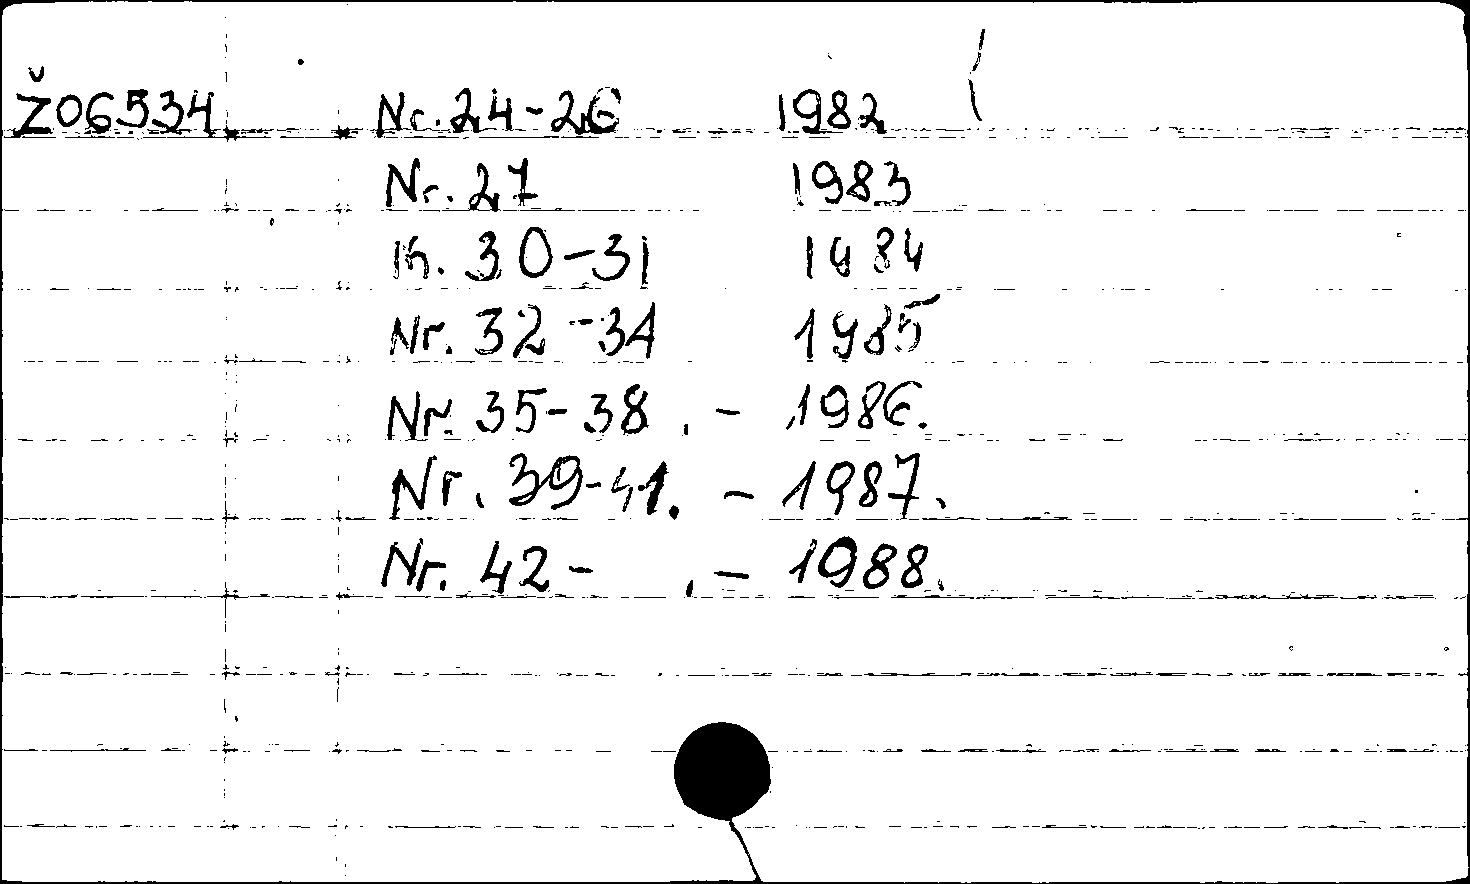 Ž06534 Nr. 24-26 1982
Nr. 27 1983
Nr. 30-31 1984
Nr. 32-34 1985
Nr. 35-38. - 1986.
Nr. 39-41. - 1987.
Nr. 42- . - 1988.